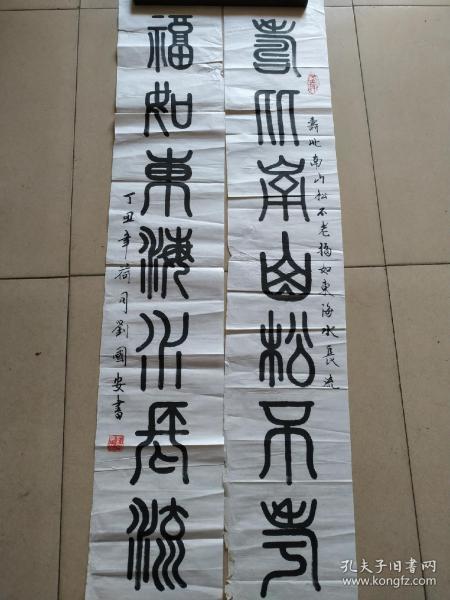 壽比南山松不老
壽比南山松不老福如東海水長流
福如東海水長流
丁丑年荷月劉國安書
孔夫子旧书网
www.kongfz.com